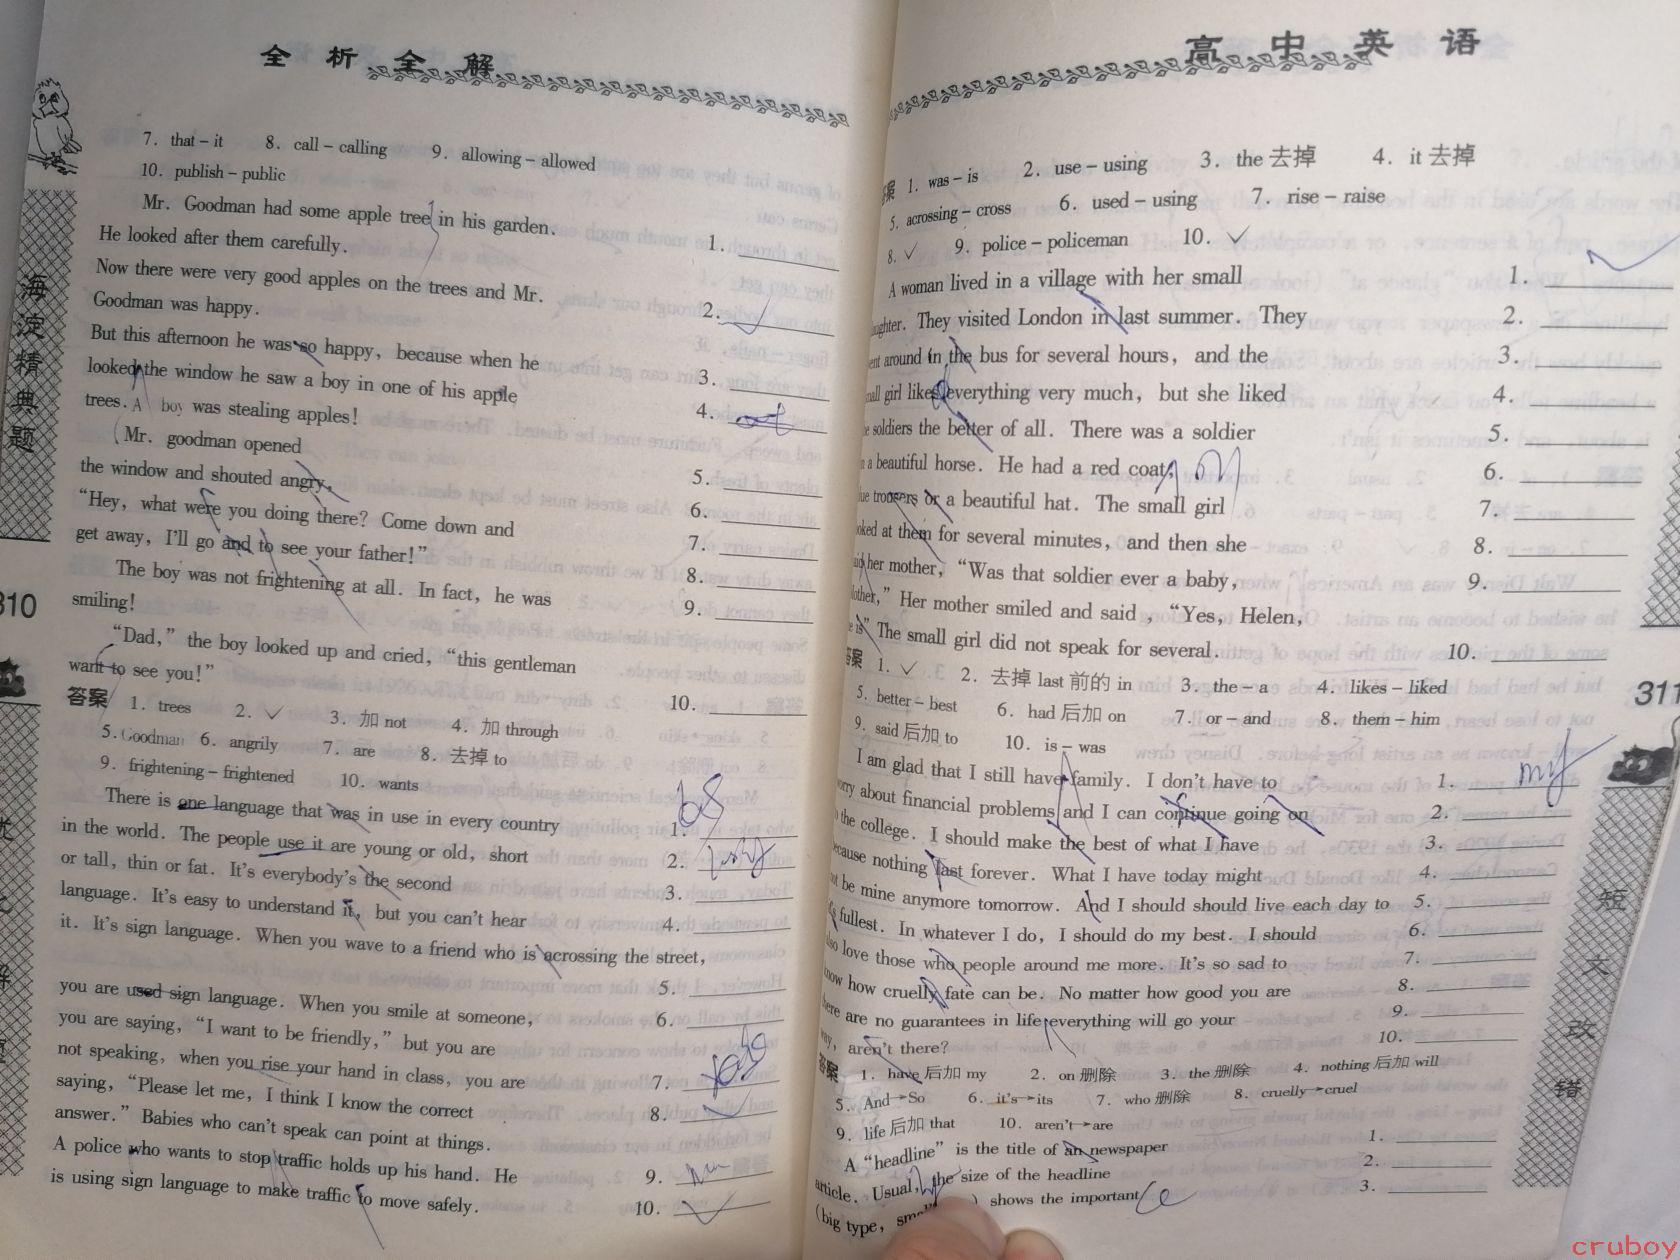 全析全解
7. that－it 8. call－calling 9. allowing－allowed
10. publish－public
Mr. Goodman had some apple tree in his garden. 1.
He looked after them carefully.
Now there were very good apples on the trees and Mr.
Goodman was happy. 2.
But this afternoon he was so happy, because when he
looked the window he saw a boy in one of his apple 3.
trees. A boy was stealing apples! 4.
(Mr. goodman opened
the window and shouted angry, 5.
“Hey, what were you doing there? Come down and 6.
get away, I'll go and to see your father!” 7.
The boy was not frightening at all. In fact, he was 8.
smiling! 9.
“Dad,” the boy looked up and cried, “this gentleman
want to see you!” 10.
答案 1. trees 2. ✓ 3. 加 not 4. 加 through
5. Goodman 6. angrily 7. are 8. 去掉 to
9. frightening－frightened 10. wants
There is one language that was in use in every country 1.
in the world. The people use it are young or old, short 2.
or tall, thin or fat. It's everybody's the second 3.
language. It's easy to understand it, but you can't hear 4.
it. It's sign language. When you wave to a friend who is acrossing the street,
you are used sign language. When you smile at someone, 5.
you are saying, “I want to be friendly,” but you are 6.
not speaking, when you rise your hand in class, you are
saying, “Please let me, I think I know the correct 7.
answer.” Babies who can't speak can point at things. 8.
A police who wants to stop traffic holds up his hand. He 9.
is using sign language to make traffic to move safely. 10.
海淀精典题
310
高中英语
答案 1. was－is 2. use－using 3. the 去掉 4. it 去掉
5. acrossing－cross 6. used－using 7. rise－raise
8. ✓ 9. police－policeman 10. ✓
A woman lived in a village with her small 1.
They visited London in last summer. They 2.
around in the bus for several hours, and the 3.
girl likes everything very much, but she liked 4.
soldiers the better of all. There was a soldier 5.
a beautiful horse. He had a red coat, 6.
trousers or a beautiful hat. The small girl 7.
at them for several minutes, and then she 8.
her mother, “Was that soldier ever a baby, 9.
” Her mother smiled and said, “Yes, Helen,
is” The small girl did not speak for several. 10.
答案 1. ✓ 2. 去掉 last 前的 in 3. the－a 4. likes－liked
5. better－best 6. had 后加 on 7. or－and 8. them－him
9. said 后加 to 10. is－was
I am glad that I still have family. I don't have to 1. my
about financial problems and I can continue going on 2.
the college. I should make the best of what I have 3.
nothing last forever. What I have today might 4.
be mine anymore tomorrow. And I should should live each day to 5.
fullest. In whatever I do, I should do my best. I should 6.
love those who people around me more. It's so sad to 7.
how cruelly fate can be. No matter how good you are 8.
are no guarantees in life everything will go your 9.
way, aren't there? 10.
答案 1. have 后加 my 2. on 删除 3. the 删除 4. nothing 后加 will
5. And→So 6. it's→its 7. who 删除 8. cruelly→cruel
9. life 后加 that 10. aren't→are
A “headline” is the title of an newspaper 1.
article. Usual, the size of the headline 2.
(big type, ) shows the important 3.
311
短文改错
cruboy